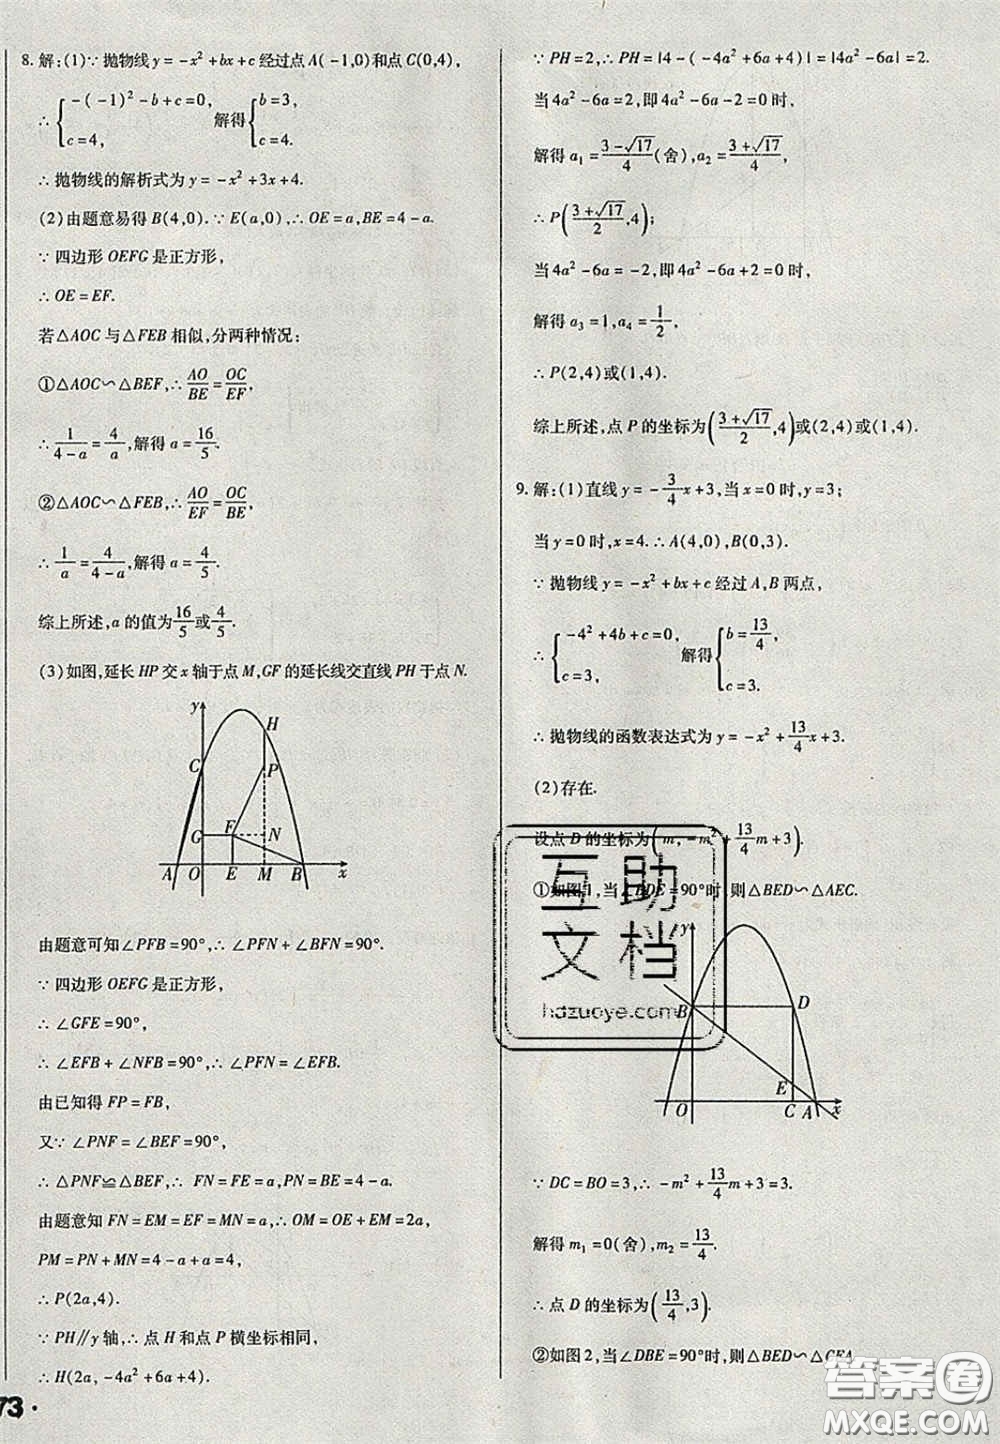 8.解:(1)∵抛物线y=-x²+bx+c经过点A(-1,0)和点C(0,4),
∴{-(-1)²-b+c=0, c=4, 解得{b=3, c=4.
∴抛物线的解析式为y=-x²+3x+4.
(2)由题意易得B(4,0).∵E(a,0),∴OE=a,BE=4-a.
∵四边形OEFG是正方形,
∴OE=EF.
若△AOC与△FEB相似,分两种情况:
①△AOC∽△BEF,∴AO/BE=OC/EF,
∴1/(4-a)=4/a,解得a=16/5.
②△AOC∽△FEB,∴AO/EF=OC/BE,
∴1/a=4/(4-a),解得a=4/5.
综上所述,a的值为16/5或4/5.
(3)如图,延长HP交x轴于点M,GF的延长线交直线PH于点N.
y
H
C
P
G
F
N
A O E M B x
由题意可知∠PFB=90°,∴∠PFN+∠BFN=90°.
∵四边形OEFG是正方形,
∴∠GFE=90°,
∴∠EFB+∠NFB=90°,∴∠PFN=∠EFB.
由已知得FP=FB,
又∵∠PNF=∠BEF=90°,
∴△PNF≌△BEF,∴FN=FE=a,PN=BE=4-a.
由题意知FN=EM=EF=MN=a,∴OM=OE+EM=2a,
PM=PN+MN=4-a+a=4,
∴P(2a,4).
∵PH∥y轴,∴点H和点P横坐标相同,
∴H(2a,-4a²+6a+4).
73·
∵PH=2,∴PH=|4-(-4a²+6a+4)|=|4a²-6a|=2.
当4a²-6a=2,即4a²-6a-2=0时,
解得a₁=(3-√17)/4(舍),a₂=(3+√17)/4,
∴P((3+√17)/2,4);
当4a²-6a=-2,即4a²-6a+2=0时,
解得a₃=1,a₄=1/2,
∴P(2,4)或(1,4).
综上所述,点P的坐标为((3+√17)/2,4)或(2,4)或(1,4).
9.解:(1)直线y=-3/4x+3,当x=0时,y=3;
当y=0时,x=4.∴A(4,0),B(0,3).
∵抛物线y=-x²+bx+c经过A,B两点,
∴{-4²+4b+c=0, c=3, 解得{b=13/4, c=3.
∴抛物线的函数表达式为y=-x²+13/4x+3.
(2)存在.
设点D的坐标为(m,-m²+13/4m+3).
①如图1,当∠BDE=90°时,则△BED∽△AEC.
互助
文档
hdzuoye.com
y
B
D
E
O C A x
∵DC=BO=3,∴-m²+13/4m+3=3.
解得m₁=0(舍),m₂=13/4.
∴点D的坐标为(13/4,3).
②如图2,当∠DBE=90°时,则△BED∽△CEA.
答案圈
MXQE.COM